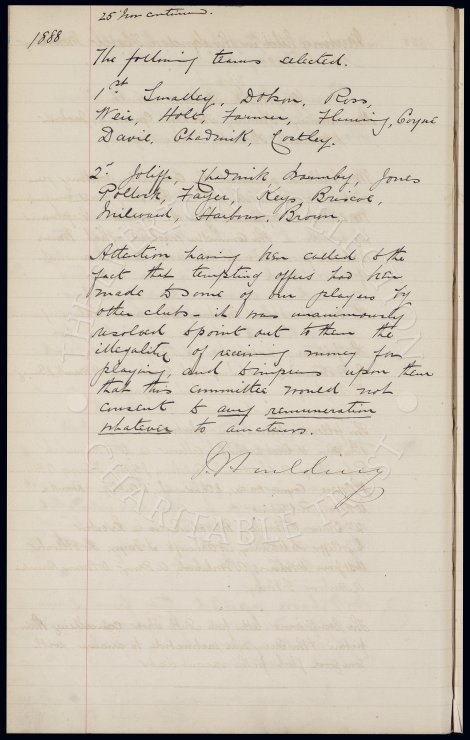 25 Nov continued.
1888
The following teams selected.
1st Smalley, Dobson, Ross,
Weir, Holt, Farmer, Fleming, Coyne
Davie, Chadwick, Costley.
2nd Joliffe, Chadwick, Jones
Pollock, Fayer, Keys, Briscoe,
Milward, Harbour, Brown,
Attention having been called to the
fact that tempting offers had been
made to some of our players by
other clubs - it was unanimously
resolved to point out to them the
illegality of receiving money for
playing, and to impress upon them
that this committee would not
consent to any remuneration
whatever to amateurs.
J Houlding
CHARITABLE TRUST